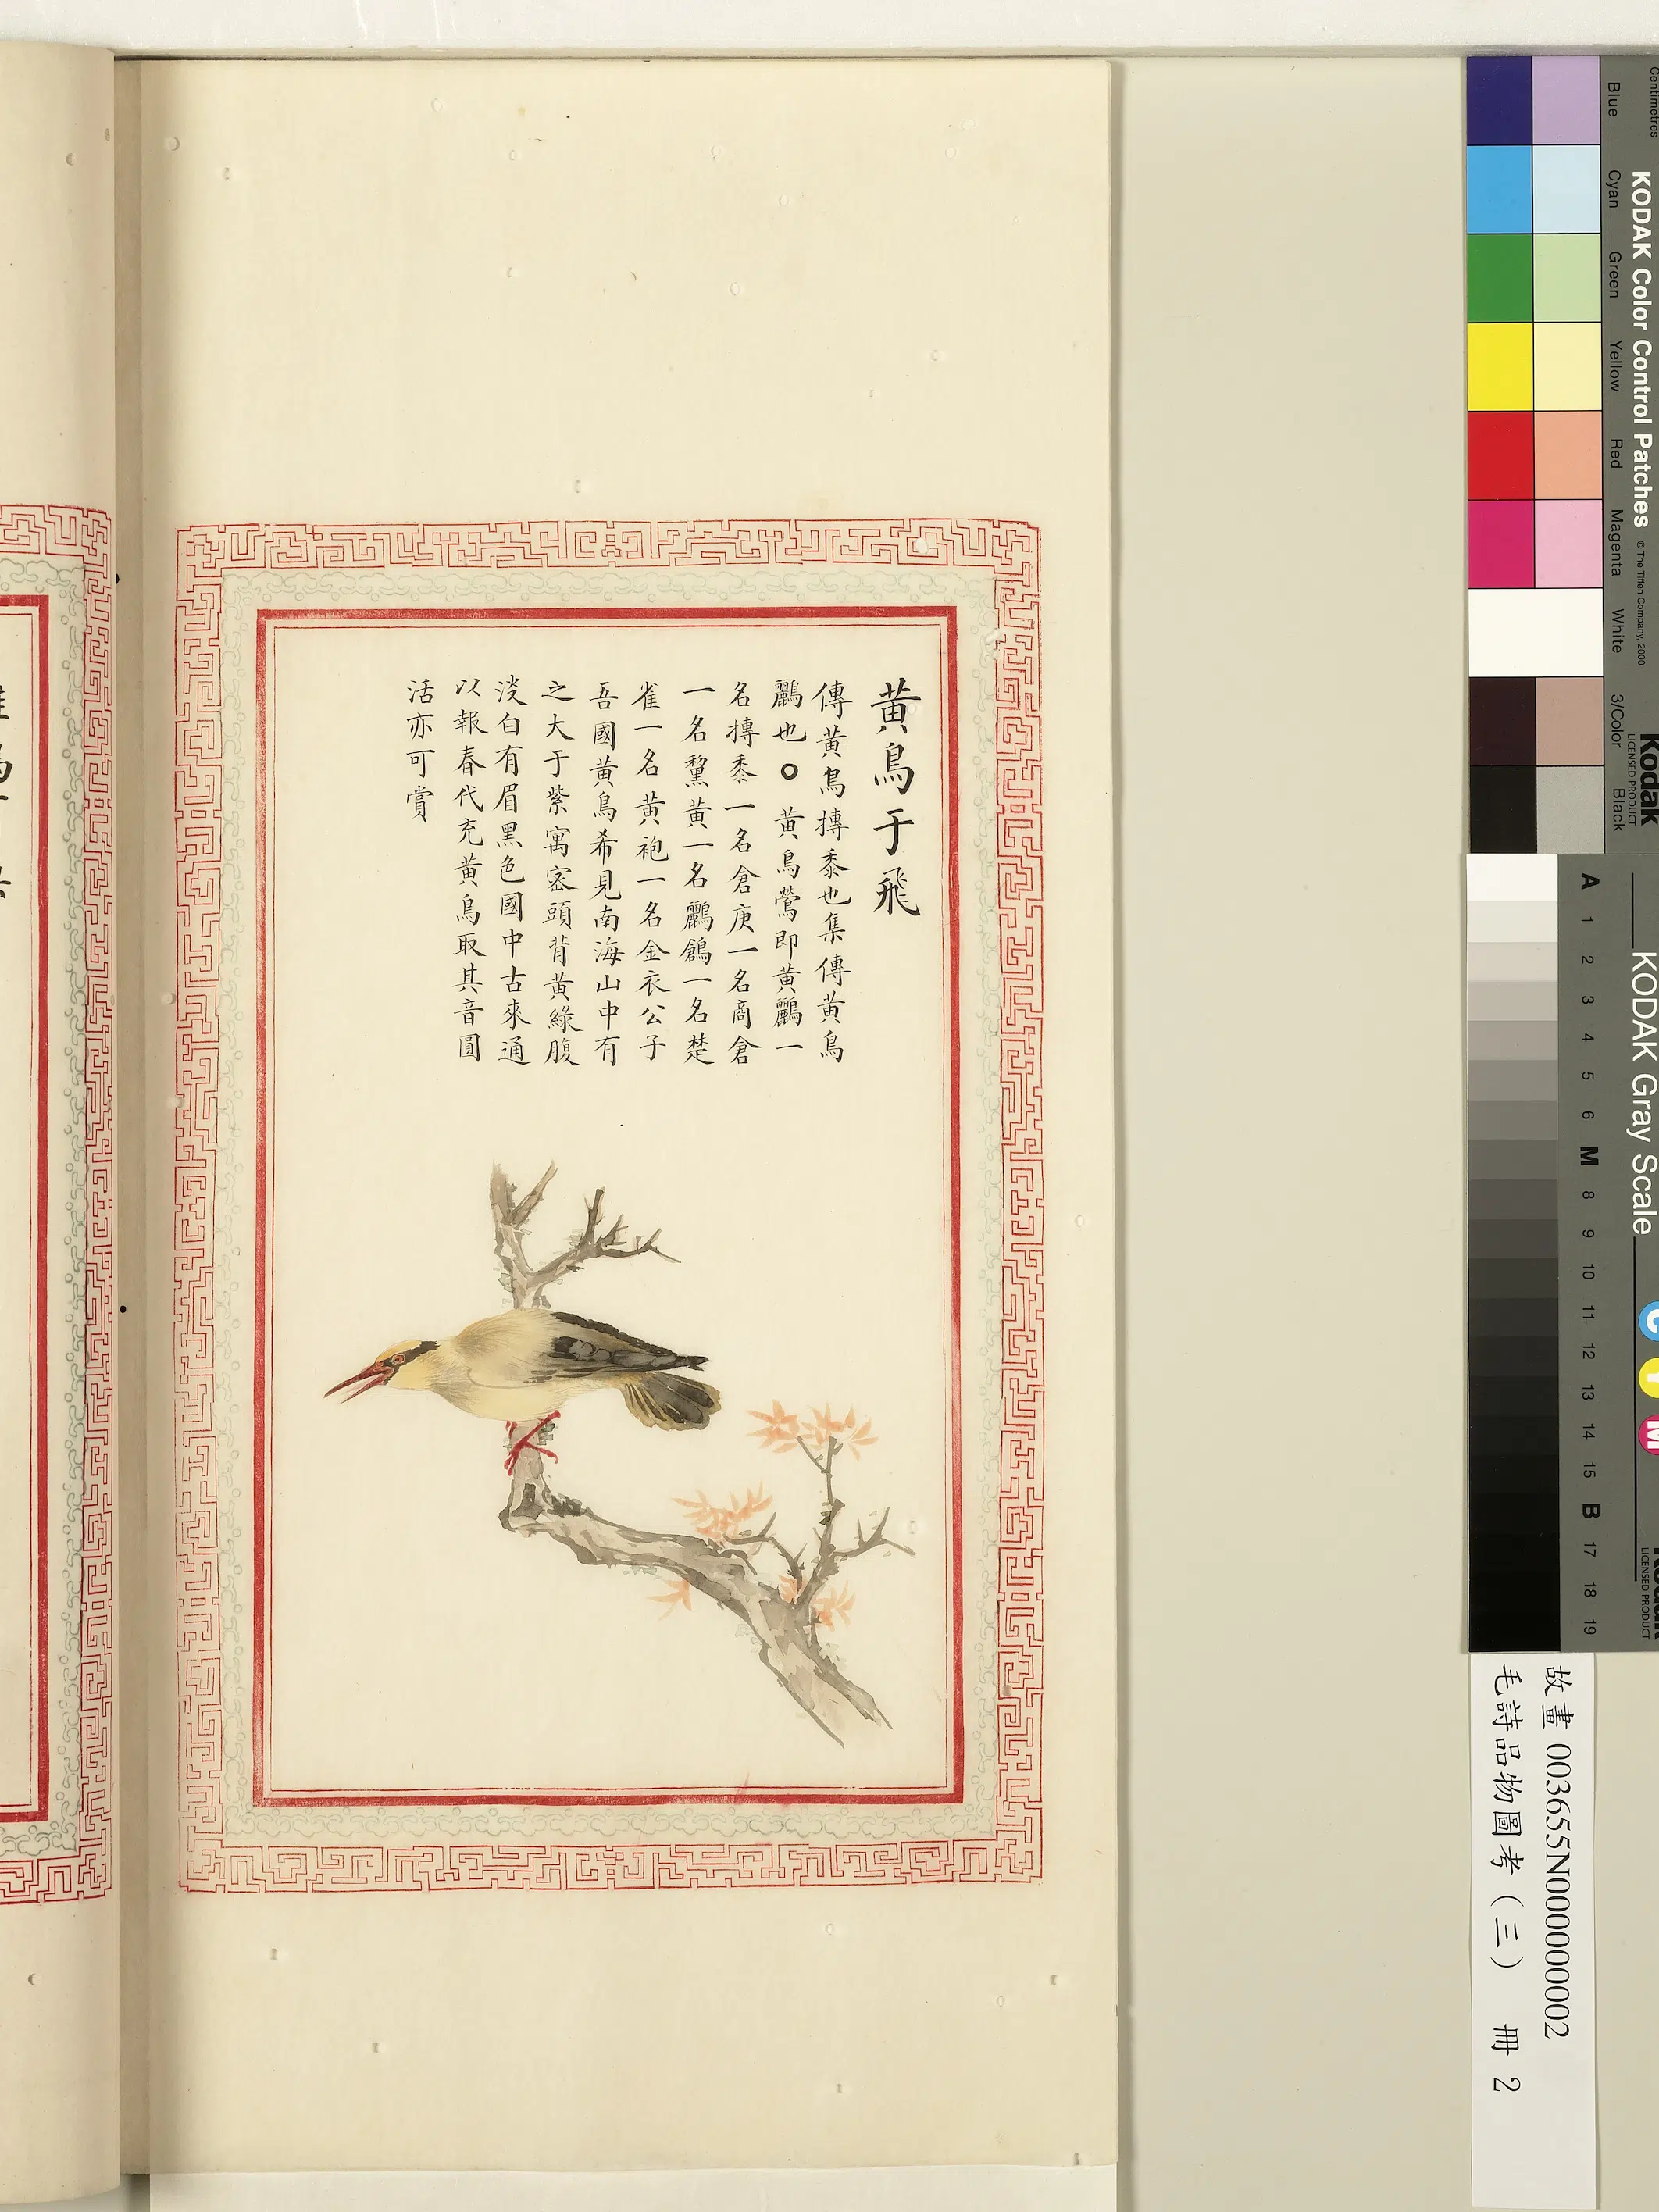 黄鳥于飛
傳黄鳥摶黍也集傳黄鳥
鸝也。黄鳥鶯即黄鸝一
名摶黍一名倉庚一名商倉
一名鵹黄一名鸝鶬一名楚
雀一名黄袍一名金衣公子
吾國黄鳥希見南海山中有
之大于紫寓宻頭背黄緑腹
淡白有眉黒色國中古來通
以報春代充黄鳥取其音圓
活亦可賞
Centimetres
Blue
Cyan
Green
Yellow
Red
Magenta
White
3/Color
Black
KODAK Color Control Patches © The Tiffen Company, 2000
Kodak
LICENSED PRODUCT
KODAK Gray Scale
C
Y
M
A 1 2 3 4 5 6 M 8 9 10 11 12 13 14 15 B 17 18 19
LICENSED PRODUCT
故畫 003655N000000002
毛詩品物圖考（三） 冊 2